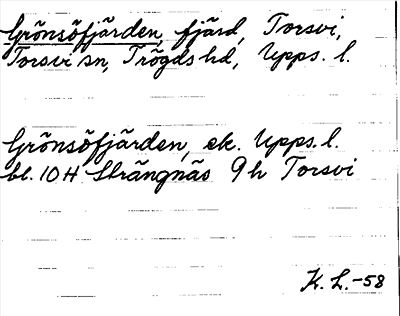 Grönsöfjärden, fjärd, Torsvi,
Torsvi sn, Trögds hd, Upps. l.
Grönsöfjärden, ek. Upps. l.
bl. 10 H Strängnäs 9 h Torsvi
K. L. -58